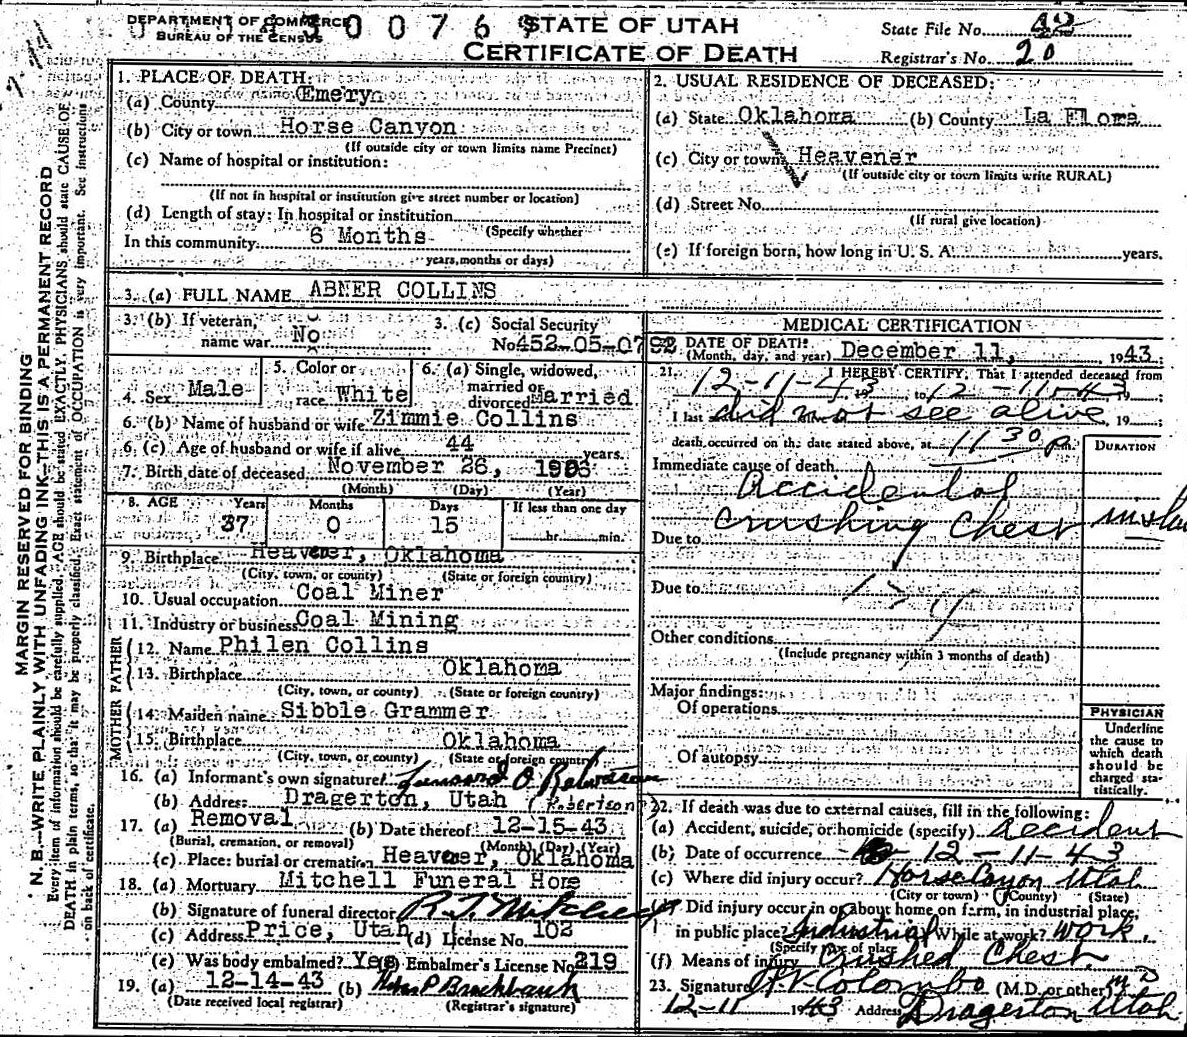 DEPARTMENT OF COMMERCE
BUREAU OF THE CENSUS
0 0 7 6 9
STATE OF UTAH
CERTIFICATE OF DEATH
State File No. 42
Registrar's No. 20
MARGIN RESERVED FOR BINDING
N. B.—WRITE PLAINLY WITH UNFADING INK—THIS IS A PERMANENT RECORD
Every item of information should be carefully supplied. AGE should be stated EXACTLY. PHYSICIANS should state CAUSE OF
DEATH in plain terms, so that it may be properly classified. Exact statement of OCCUPATION is very important. See instructions
on back of certificate.
1. PLACE OF DEATH:
(a) County Emery
(b) City or town Horse Canyon
(If outside city or town limits name Precinct)
(c) Name of hospital or institution:
(If not in hospital or institution give street number or location)
(d) Length of stay: In hospital or institution
(Specify whether
In this community 6 Months
years, months or days)
2. USUAL RESIDENCE OF DECEASED:
(a) State Oklahoma (b) County La Flora
(c) City or town Heavener
(If outside city or town limits write RURAL)
(d) Street No.
(If rural give location)
(e) If foreign born, how long in U. S. A. years.
3. (a) FULL NAME ABNER COLLINS
3. (b) If veteran, name war No
3. (c) Social Security No. 452-05-0792
4. Sex Male
5. Color or race White
6. (a) Single, widowed, married or divorced Married
6. (b) Name of husband or wife Zimmie Collins
6. (c) Age of husband or wife if alive 44 years.
7. Birth date of deceased November 26, 1906
(Month) (Day) (Year)
8. AGE Years Months Days If less than one day
37 0 15 hr. min.
9. Birthplace Heavener, Oklahoma
(City, town, or county) (State or foreign country)
10. Usual occupation Coal Miner
11. Industry or business Coal Mining
FATHER
12. Name Philen Collins
13. Birthplace Oklahoma
(City, town, or county) (State or foreign country)
MOTHER
14. Maiden name Sibble Grammer
15. Birthplace Oklahoma
(City, town, or county) (State or foreign country)
16. (a) Informant's own signature O. Robertson
(b) Address Dragerton, Utah (Robertson)
17. (a) Removal (b) Date thereof 12-15-43
(Burial, cremation, or removal) (Month) (Day) (Year)
(c) Place: burial or cremation Heavener, Oklahoma
18. (a) Mortuary Mitchell Funeral Home
(b) Signature of funeral director R. T. Mitchell
(c) Address Price, Utah (d) License No. 102
(e) Was body embalmed? Yes (f) Embalmer's License No. 219
19. (a) 12-14-43 (b) P Brockbank
(Date received local registrar) (Registrar's signature)
MEDICAL CERTIFICATION
DATE OF DEATH:
(Month, day, and year) December 11, 1943
21. I HEREBY CERTIFY, That I attended deceased from
12-11-43, 19 to 12-11-43
I last did not see alive, 19
death occurred on the date stated above, at 11 30 p m.
DURATION
Immediate cause of death
Accidental
crushing Chest
Due to
Due to
Other conditions
(Include pregnancy within 3 months of death)
Major findings:
Of operations
Of autopsy
PHYSICIAN
Underline
the cause to
which death
should be
charged sta-
tistically.
22. If death was due to external causes, fill in the following:
(a) Accident, suicide, or homicide (specify) Accident
(b) Date of occurrence 12-11-43
(c) Where did injury occur? Horse Canyon Utah
(City or town) (County) (State)
(d) Did injury occur in or about home on farm, in industrial place,
in public place? Industrial While at work? Work.
(Specify type of place)
(f) Means of injury Crushed Chest.
23. Signature Colombo (M.D. or other) MD
12-11 1943 Address Dragerton Utah.